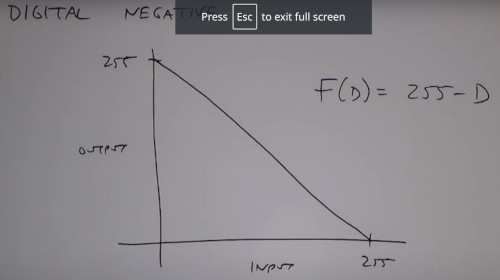 DIGITAL NEGATIVE
Press Esc to exit full screen
255
F(D) = 255 - D
OUTPUT
INPUT
255